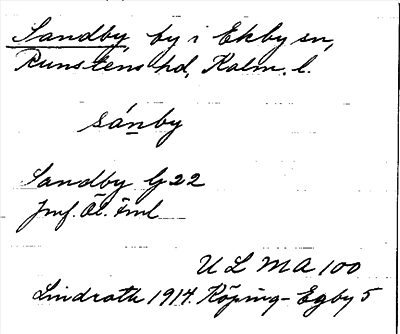 Sandby, by i Ekby sn,
Runstens hd, Kalm. l.
sánby
Sandby G 22
Jmf. Öl. Fml
U L M A 100
Lindroth 1914. Köping-Egby 5